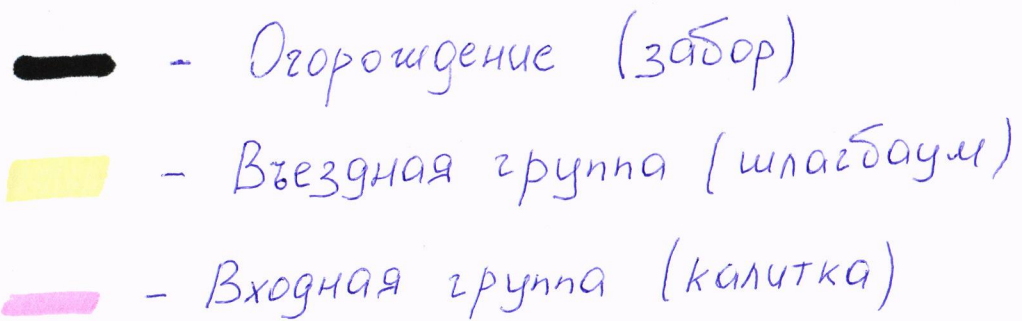 - Огорошдение (забор)
- Въездная группа (шлагбаум)
- Входная группа (калитка)